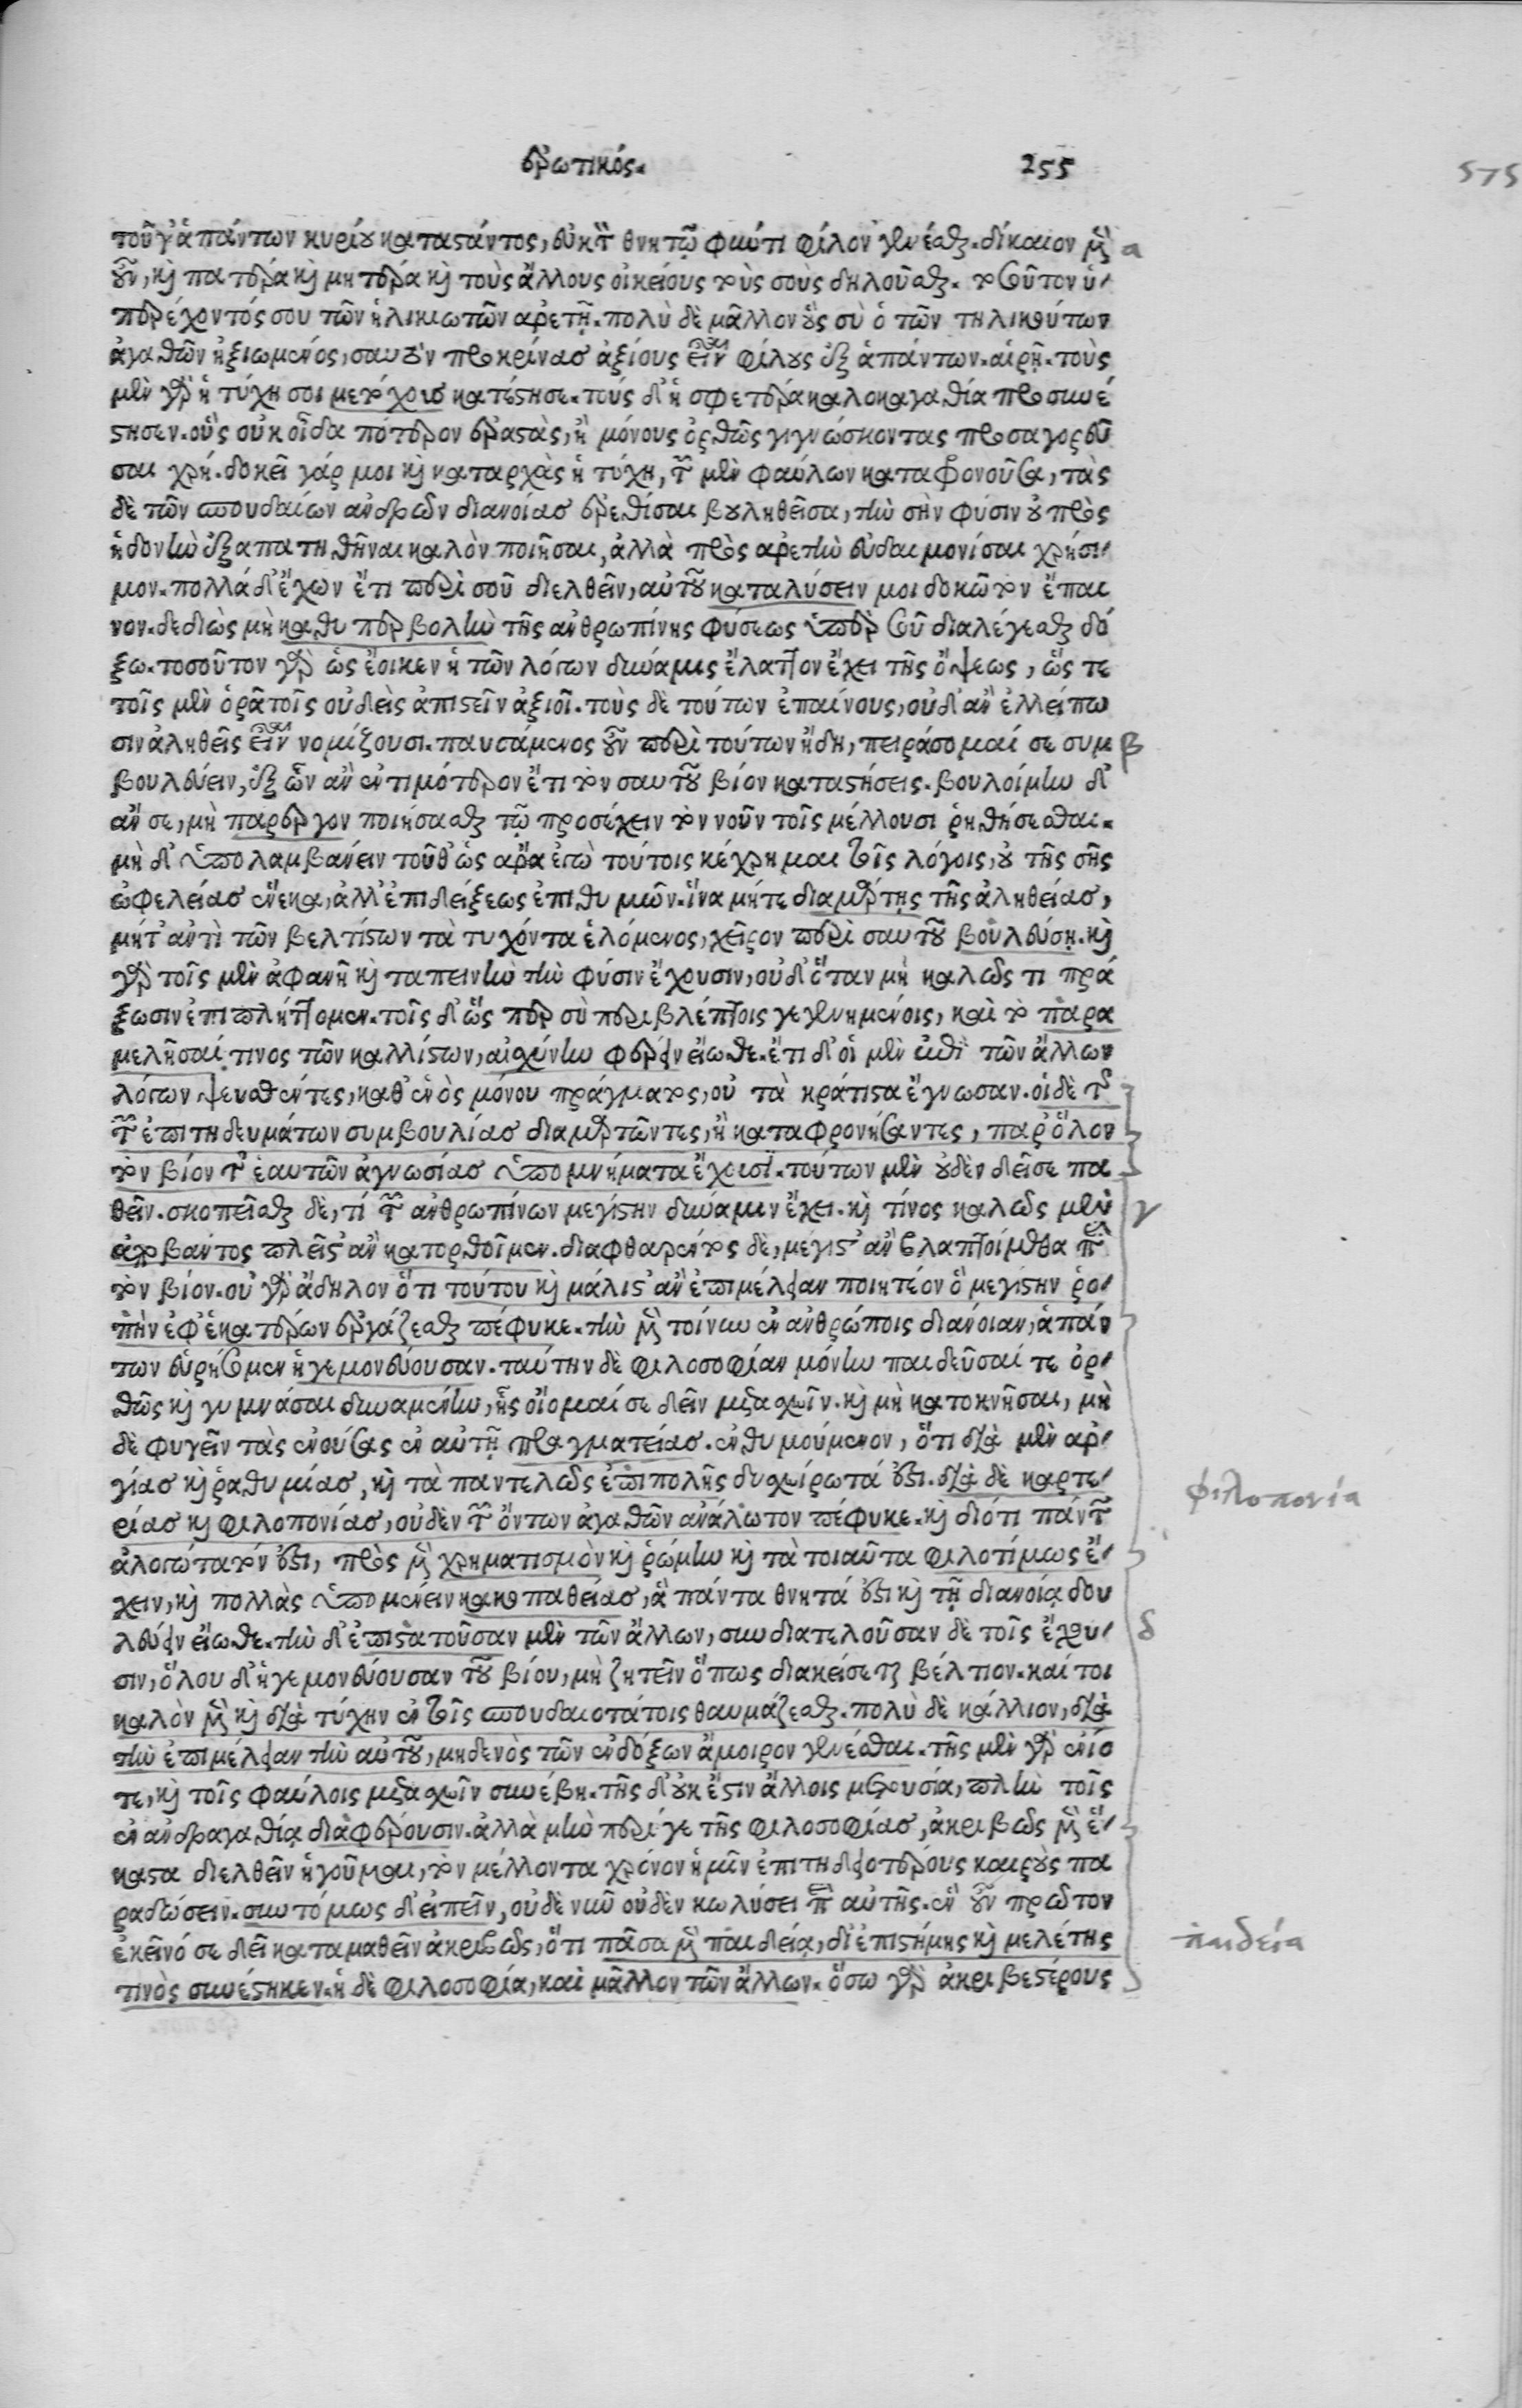 ἐρωτικός. 255
575
τοῦ γ᾽ ἁπάντων κυρίου καταστάντος, εὐκτὸν θνητῷ φιώτι φίλον γενέσθαι. δίκαιον μὲν α
οὖν, καὶ πατέρα καὶ μητέρα καὶ τοὺς ἄλλους οἰκείους τοὺς σοὺς ζηλοῦσθαι. τοσοῦτον ὑ-
περέχοντός σου τῶν ἡλικιωτῶν ἀρετῇ. πολὺ δὲ μᾶλλον οὓς σὺ ὁ τῶν τηλικούτων
ἀγαθῶν ἠξιωμένος, σαυτὸν προκρίνας ἀξίους εἶναι φίλους ἐξ ἁπάντων αἱρῇ. τοὺς
μὲν γὰρ ἡ τύχη σοι μετόχους κατέστησε. τοὺς δ᾽ ἡ σφετέρα καλοκαγαθία προσσυνέ
στησεν. οὓς οὐκ οἶδα πότερον ἐραστὰς, ἢ μόνους ὀρθῶς γιγνώσκοντας προσαγορεῦ
σαι χρή. δοκεῖ γάρ μοι καὶ καταρχὰς ἡ τύχη, τῶν μὲν φαύλων καταφρονοῦσα, τὰς
δὲ τῶν σπουδαίων ἀνδρῶν διανοίας ἐρεθίσαι βουληθεῖσα, τὴν σὴν φύσιν οὐ πρὸς
ἡδονὴν ἐξαπατηθῆναι καλὸν ποιῆσαι, ἀλλὰ πρὸς ἀρετὴν εὐδαιμονίσαι χρήσι-
μον. πολλὰ δ᾽ ἔχων ἔτι περὶ σοῦ διελθεῖν, αὐτοῦ καταλύσειν μοι δοκῶ τὸν ἔπαι
νον. δεδιὼς μὴ καθ᾽ ὑπερβολὴν τῆς ἀνθρωπίνης φύσεως ὑπὲρ σοῦ διαλέγεσθαι δό
ξω. τοσοῦτον γὰρ ὡς ἔοικεν ἡ τῶν λόγων δύναμις ἔλαττον ἔχει τῆς ὄψεως, ὥς τε
τοῖς μὲν ὁρατοῖς οὐδεὶς ἀπιστεῖν ἀξιοῖ. τοὺς δὲ τούτων ἐπαίνους, οὐδ᾽ ἂν ἐλλείπω
σιν ἀληθεῖς εἶναι νομίζουσι. παυσάμενος οὖν περὶ τούτων ἤδη, πειράσομαί σε συμ β
βουλεύειν, ἐξ ὧν ἂν ἐντιμότερον ἔτι τὸν σαυτοῦ βίον καταστήσεις. βουλοίμην δ᾽
ἄν σε, μὴ παρέργον ποιήσασθαι τῷ προσέχειν τὸν νοῦν τοῖς μέλλουσι ῥηθήσεσθαι.
μὴ δ᾽ ὑπολαμβάνειν τοῦθ᾽ ὡς ἄρα ἐγὼ τούτοις κέχρημαι τοῖς λόγοις, οὐ τῆς σῆς
ὠφελείας ἕνεκα, ἀλλ᾽ ἐπιδείξεως ἐπιθυμῶν. ἵνα μήτε διαμάρτῃς τῆς ἀληθείας,
μήτ᾽ ἀντὶ τῶν βελτίστων τὰ τυχόντα ἑλόμενος, χεῖρον περὶ σαυτοῦ βουλεύσῃ. καὶ
γὰρ τοῖς μὲν ἀφανῆ καὶ ταπεινὴν τὴν φύσιν ἔχουσιν, οὐδ᾽ ὅταν μὴ καλῶς τι πρά
ξωσιν ἐπιπλήττομεν. τοῖς δ᾽ ὥς περ σὺ περιβλέπτοις γεγενημένοις, καὶ τὸ παρα
μελῆσαί τινος τῶν καλλίστων, αἰσχύνην φέρειν εἴωθε. ἔτι δ᾽ οἱ μὲν ἐπὶ τῶν ἄλλων
λόγων ψευσθέντες, καθ᾽ ἑνὸς μόνου πράγματος, οὐ τὰ κράτιστα ἔγνωσαν. οἱ δὲ τῆς
τῶν ἐπιτηδευμάτων συμβουλίας διαμαρτῶντες, ἢ καταφρονήσαντες, παρ᾽ ὅλον
τὸν βίον τῆς ἑαυτῶν ἀγνωσίας ὑπομνήματα ἔχουσι. τούτων μὲν οὐδὲν δεῖ σε πα
θεῖν. σκοπεῖσθαι δὲ, τί τῶν ἀνθρωπίνων μεγίστην δύναμιν ἔχει. καὶ τίνος καλῶς μὲν γ
ἀποβάντος πλεῖστ᾽ ἂν κατορθοῖμεν. διαφθαρέντος δὲ, μέγιστ᾽ ἂν βλαπτοίμεθα περὶ
τὸν βίον. οὐ γὰρ ἄδηλον ὅτι τούτου καὶ μάλιστ᾽ ἂν ἐπιμέλειαν ποιητέον ὃ μεγίστην ῥο-
πὴν ἐφ᾽ ἑκατέρων ἐργάζεσθαι πέφυκε. τὴν μὲν τοίνυν ἐν ἀνθρώποις διάνοιαν, ἁπάν
των εὑρήσομεν ἡγεμονεύουσαν. ταύτην δὲ φιλοσοφίαν μόνην παιδεῦσαί τε ὀρ-
θῶς καὶ γυμνάσαι δυναμένην, ἧς οἴομαί σε δεῖν μετασχεῖν. καὶ μὴ κατοκνῆσαι, μὴ
δὲ φυγεῖν τὰς ἐνούσας ἐν αὐτῇ πραγματείας. ἐνθυμούμενον, ὅτι διὰ μὲν ἀρ-
γίας καὶ ῥαθυμίας, καὶ τὰ παντελῶς ἐπιπολῆς δυσχείρωτά ἐστι. διὰ δὲ καρτε-
ρίας καὶ φιλοπονίας, οὐδὲν τῶν ὄντων ἀγαθῶν ἀνάλωτον πέφυκε. καὶ διότι πάντων
φιλοπονία
ἀλογώτατόν ἐστι, πρὸς μὲν χρηματισμὸν καὶ ῥώμην καὶ τὰ τοιαῦτα φιλοτίμως ἔ-
χειν, καὶ πολλὰς ὑπομένειν κακοπαθείας, ἃ πάντα θνητά ἐστι καὶ τῇ διανοίᾳ δου
λεύειν εἴωθε. τὴν δ᾽ ἐπιστατοῦσαν μὲν τῶν ἄλλων, συνδιατελοῦσαν δὲ τοῖς ἔχου- δ
σιν, ὅλου δ᾽ ἡγεμονεύουσαν τοῦ βίου, μὴ ζητεῖν ὅπως διακείσεται βέλτιον. καίτοι
καλὸν μὲν καὶ διὰ τύχην ἐν τοῖς σπουδαιοτάτοις θαυμάζεσθαι. πολὺ δὲ κάλλιον, διὰ
τὴν ἐπιμέλειαν τὴν αὑτοῦ, μηδενὸς τῶν ἐνδόξων ἄμοιρον γενέσθαι. τῆς μὲν γὰρ ἐνίο
τε, καὶ τοῖς φαύλοις μετασχεῖν συνέβη. τῆς δ᾽ οὐκ ἔστιν ἄλλοις μετουσία, πλὴν τοῖς
ἐν ἀνδραγαθίᾳ διαφέρουσιν. ἀλλὰ μὴν περί γε τῆς φιλοσοφίας, ἀκριβῶς μὲν ἕ-
καστα διελθεῖν ἡγοῦμαι, τὸν μέλλοντα χρόνον ἡμῖν ἐπιτηδειοτέρους καιροὺς πα
ραδώσειν. συντόμως δ᾽ εἰπεῖν, οὐδὲ νῦν οὐδὲν κωλύσει περὶ αὐτῆς. ἓν οὖν πρῶτον
ἐκεῖνό σε δεῖ καταμαθεῖν ἀκριβῶς, ὅτι πᾶσα μὲν παιδεία, δι᾽ ἐπιστήμης καὶ μελέτης
παιδεία
τινὸς συνέστηκεν. ἡ δὲ φιλοσοφία, καὶ μᾶλλον τῶν ἄλλων. ὅσω γὰρ ἀκριβεστέρους